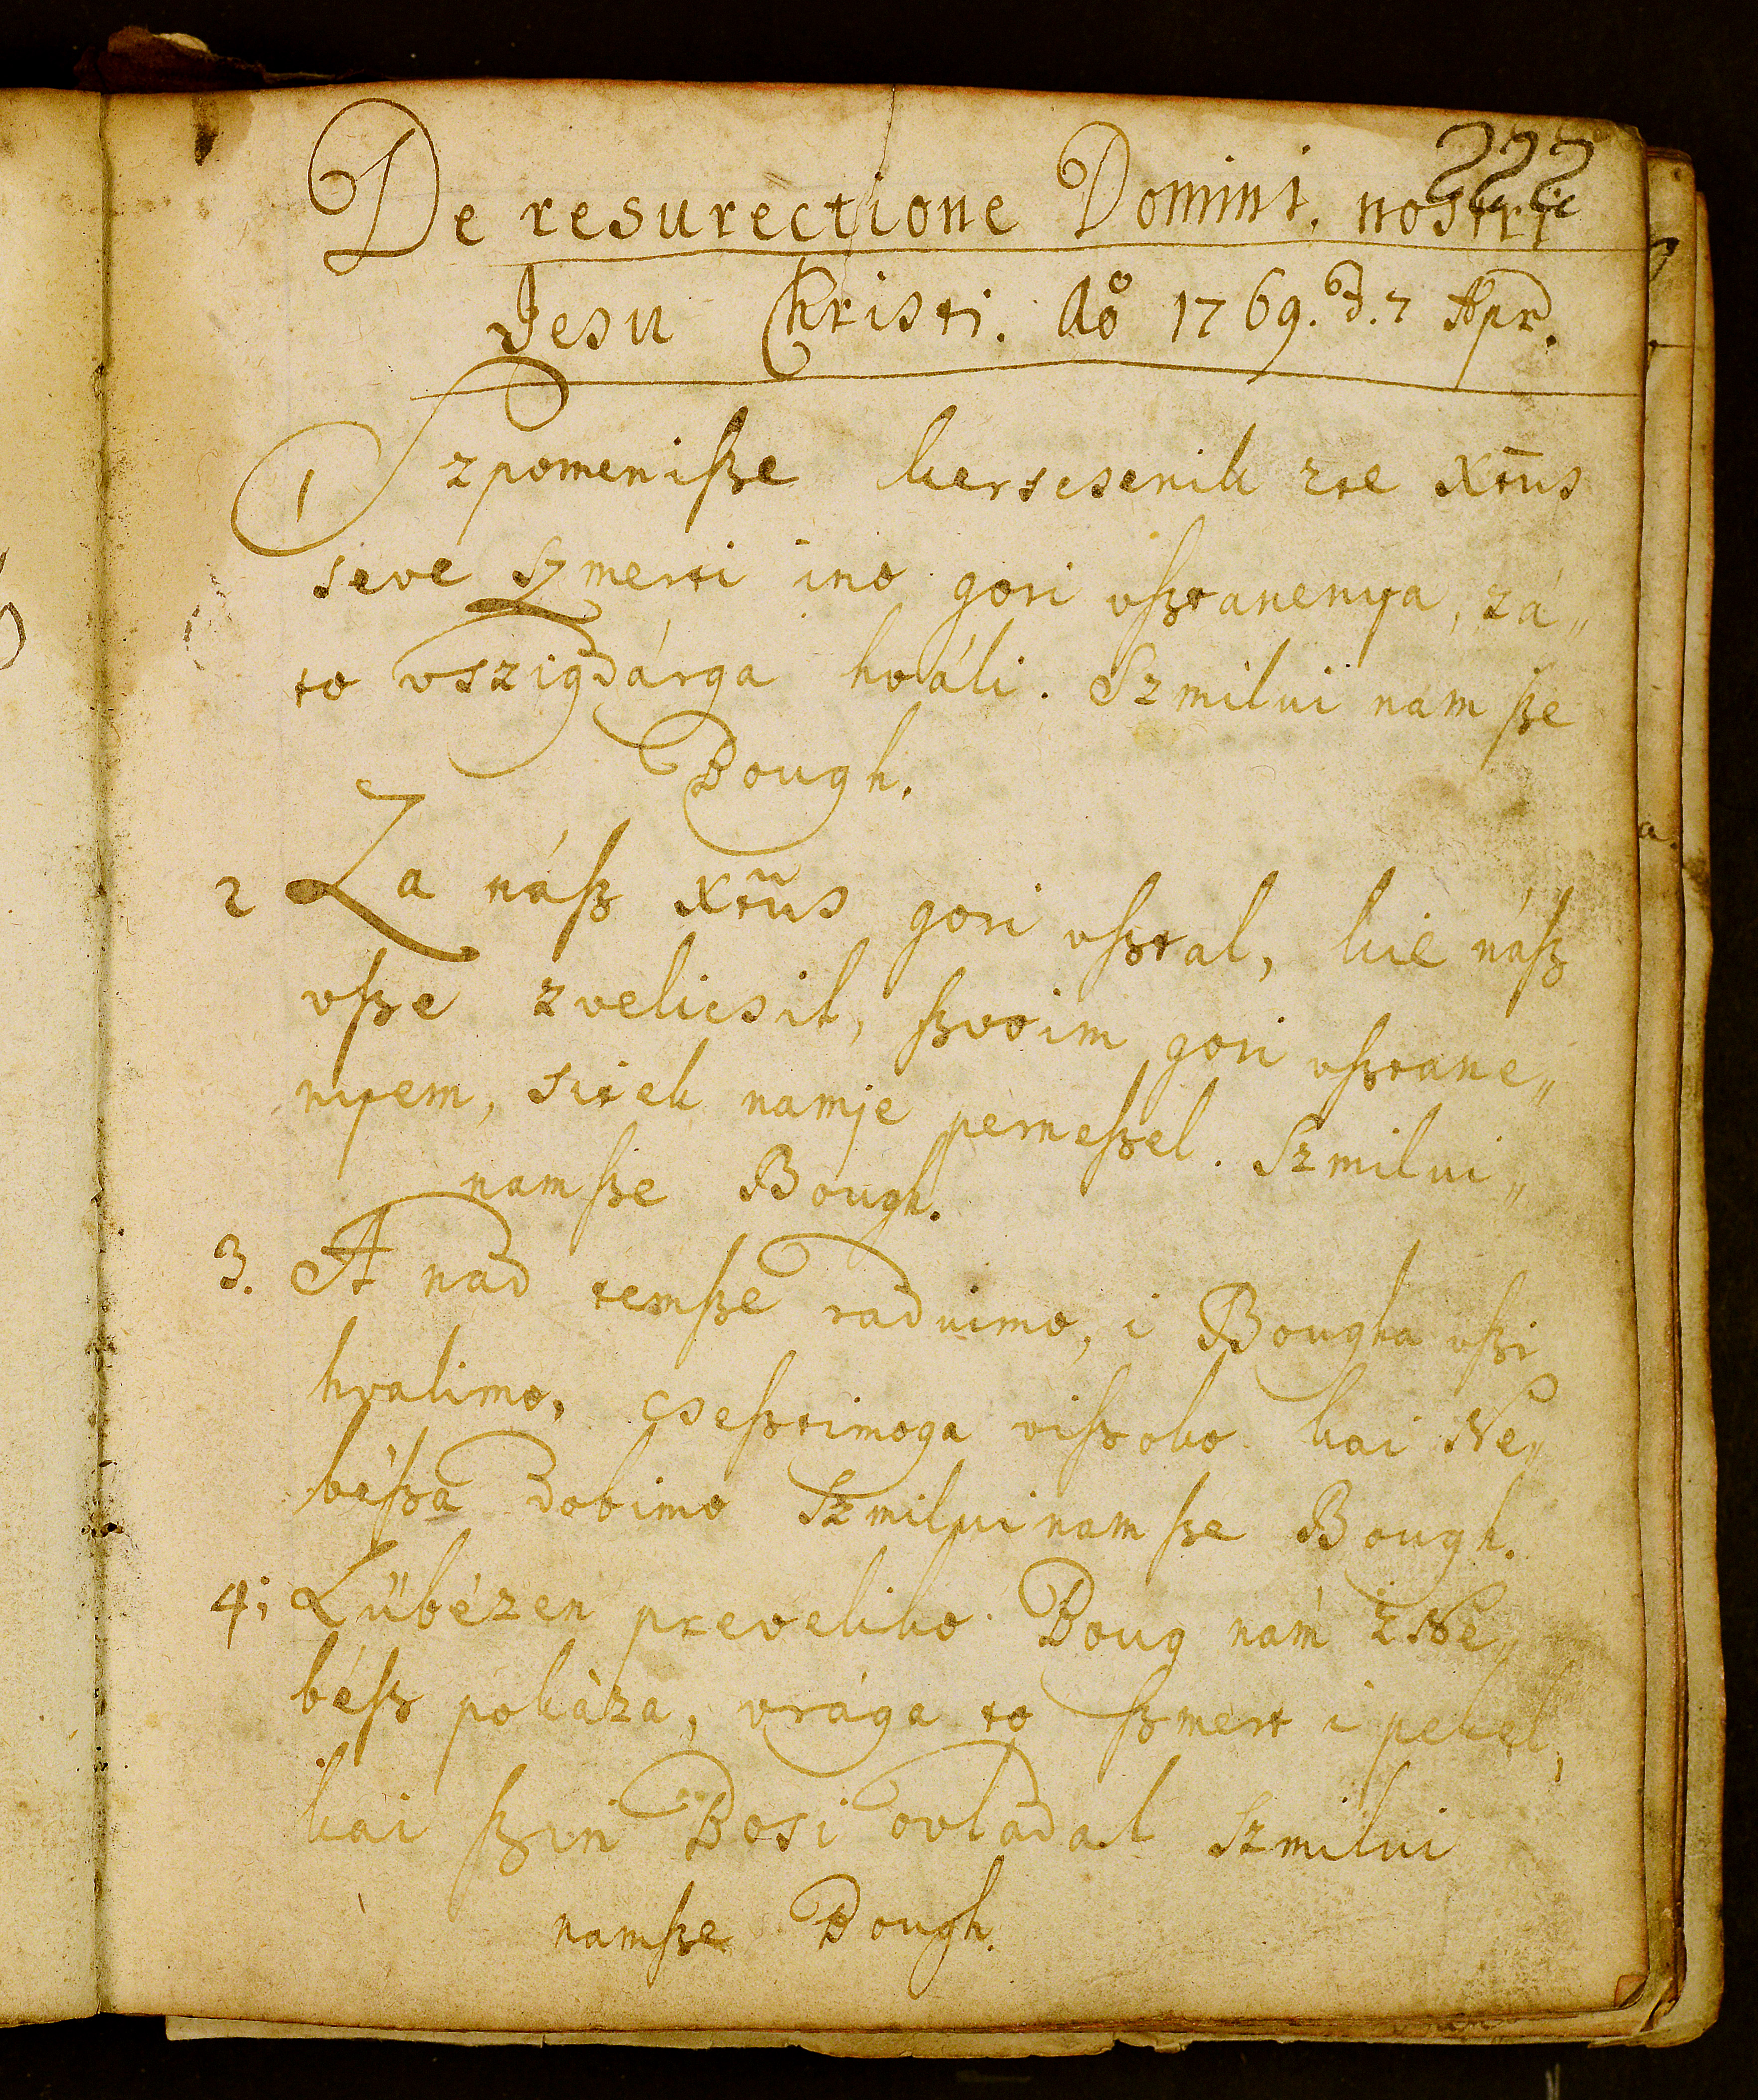 222
De resurectione Domini. nostri
Jesu Christi. Aō 1769. d. 7 Apr.
1 Szpomenißze kerscsenik zte Xtūs
seve Szmerti ino gori vßztanenya, zá„
to vszigdárga hváli. Szmilui nam ße
Bough.
2 Za náßz Xtūs gori vßztal, kie náßz
vßze zvelicsil, ßzvoim gori vßztane„
nyem, sitek namje perneßzel. Szmilui„
namßze Bough.
3. A nad temßze raduimo, i Bougha vßzi
hvalimo, cseßztimoga vißzoko kai Ne„
béßza dobimo Szmilui nam ßze Bough.
4; Lübézen preveliko Boug nám z Ne„
béßz pokáza, vrága to ßzmert i pekel,
kai ßzin Bosi ovládal Szmilui
namßze Bough.